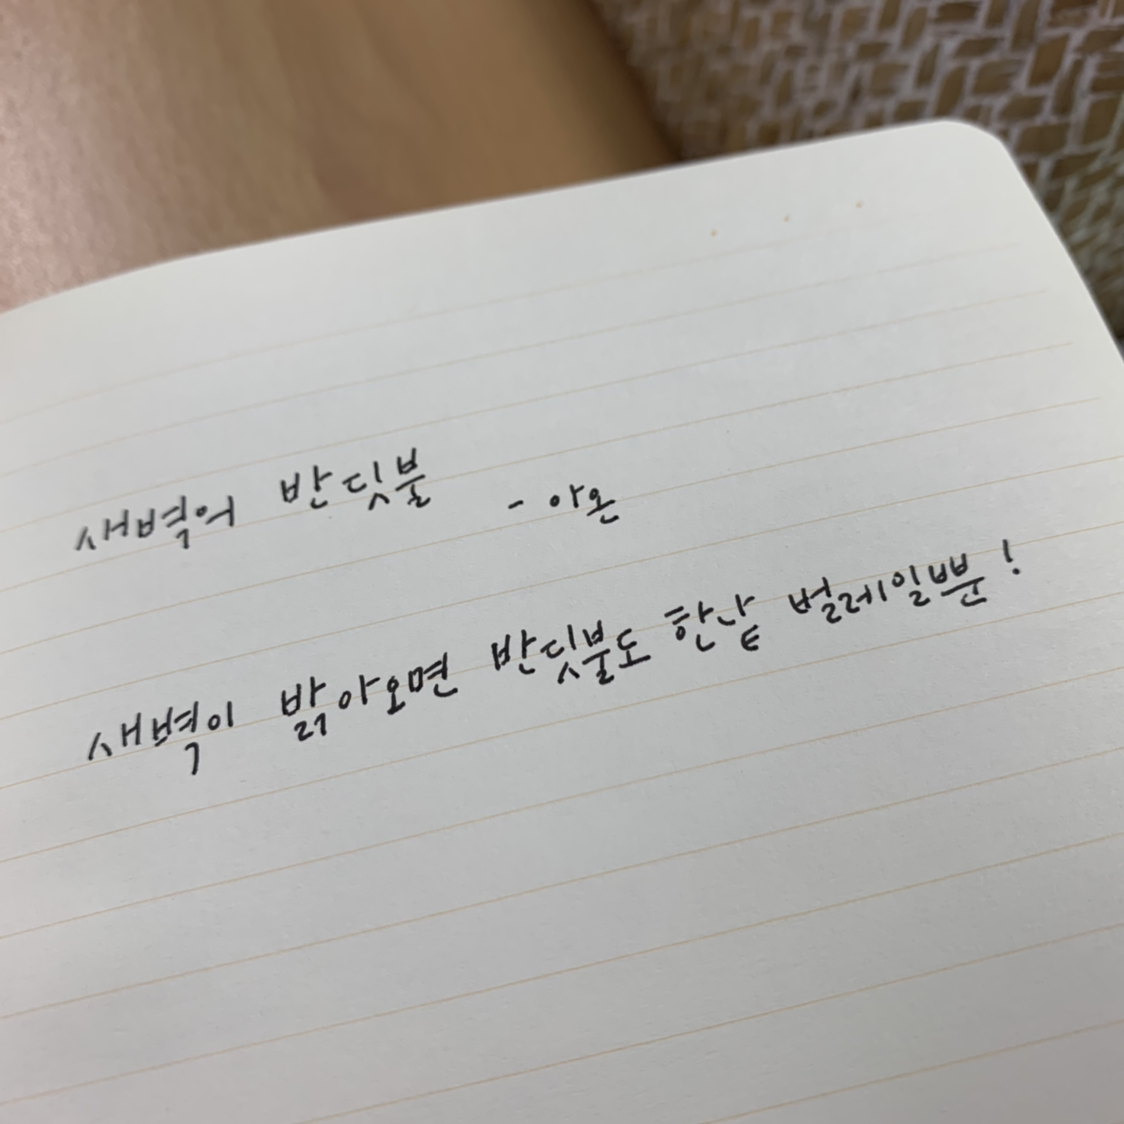 새벽어 반딧불 - 아온
새벽이 밝아오면 반딧불도 한낱 벌레일뿐!